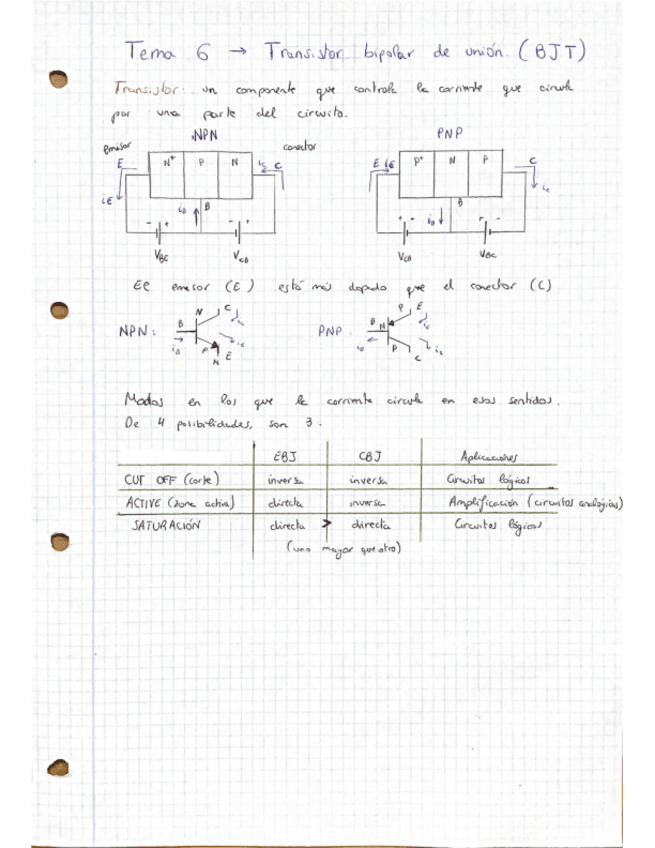 Tema 6 → Transistor bipolar de unión. (BJT)
Transistor: un componente que controla la corriente que circula
por una parte del circuito.
NPN PNP
Emisor conector
E N⁺ P N ic C
E iE P⁺ N P C
iE iB B
iB B ic
- + - +
+ - + -
VBE VCB
VCB VBC
El emisor (E) está más dopado que el conector (C)
NPN: B N C iB P N E
PNP B N P E iB P C
Modos en los que la corriente circula en esos sentidos.
De 4 posibilidades, son 3.
EBJ CBJ Aplicaciones
CUT OFF (corte) inversa inversa Circuitos lógicos
ACTIVE (zona activa) directa inversa Amplificación (circuitos analógicos)
SATURACIÓN directa > directa Circuitos lógicos
(uno mayor que otro)